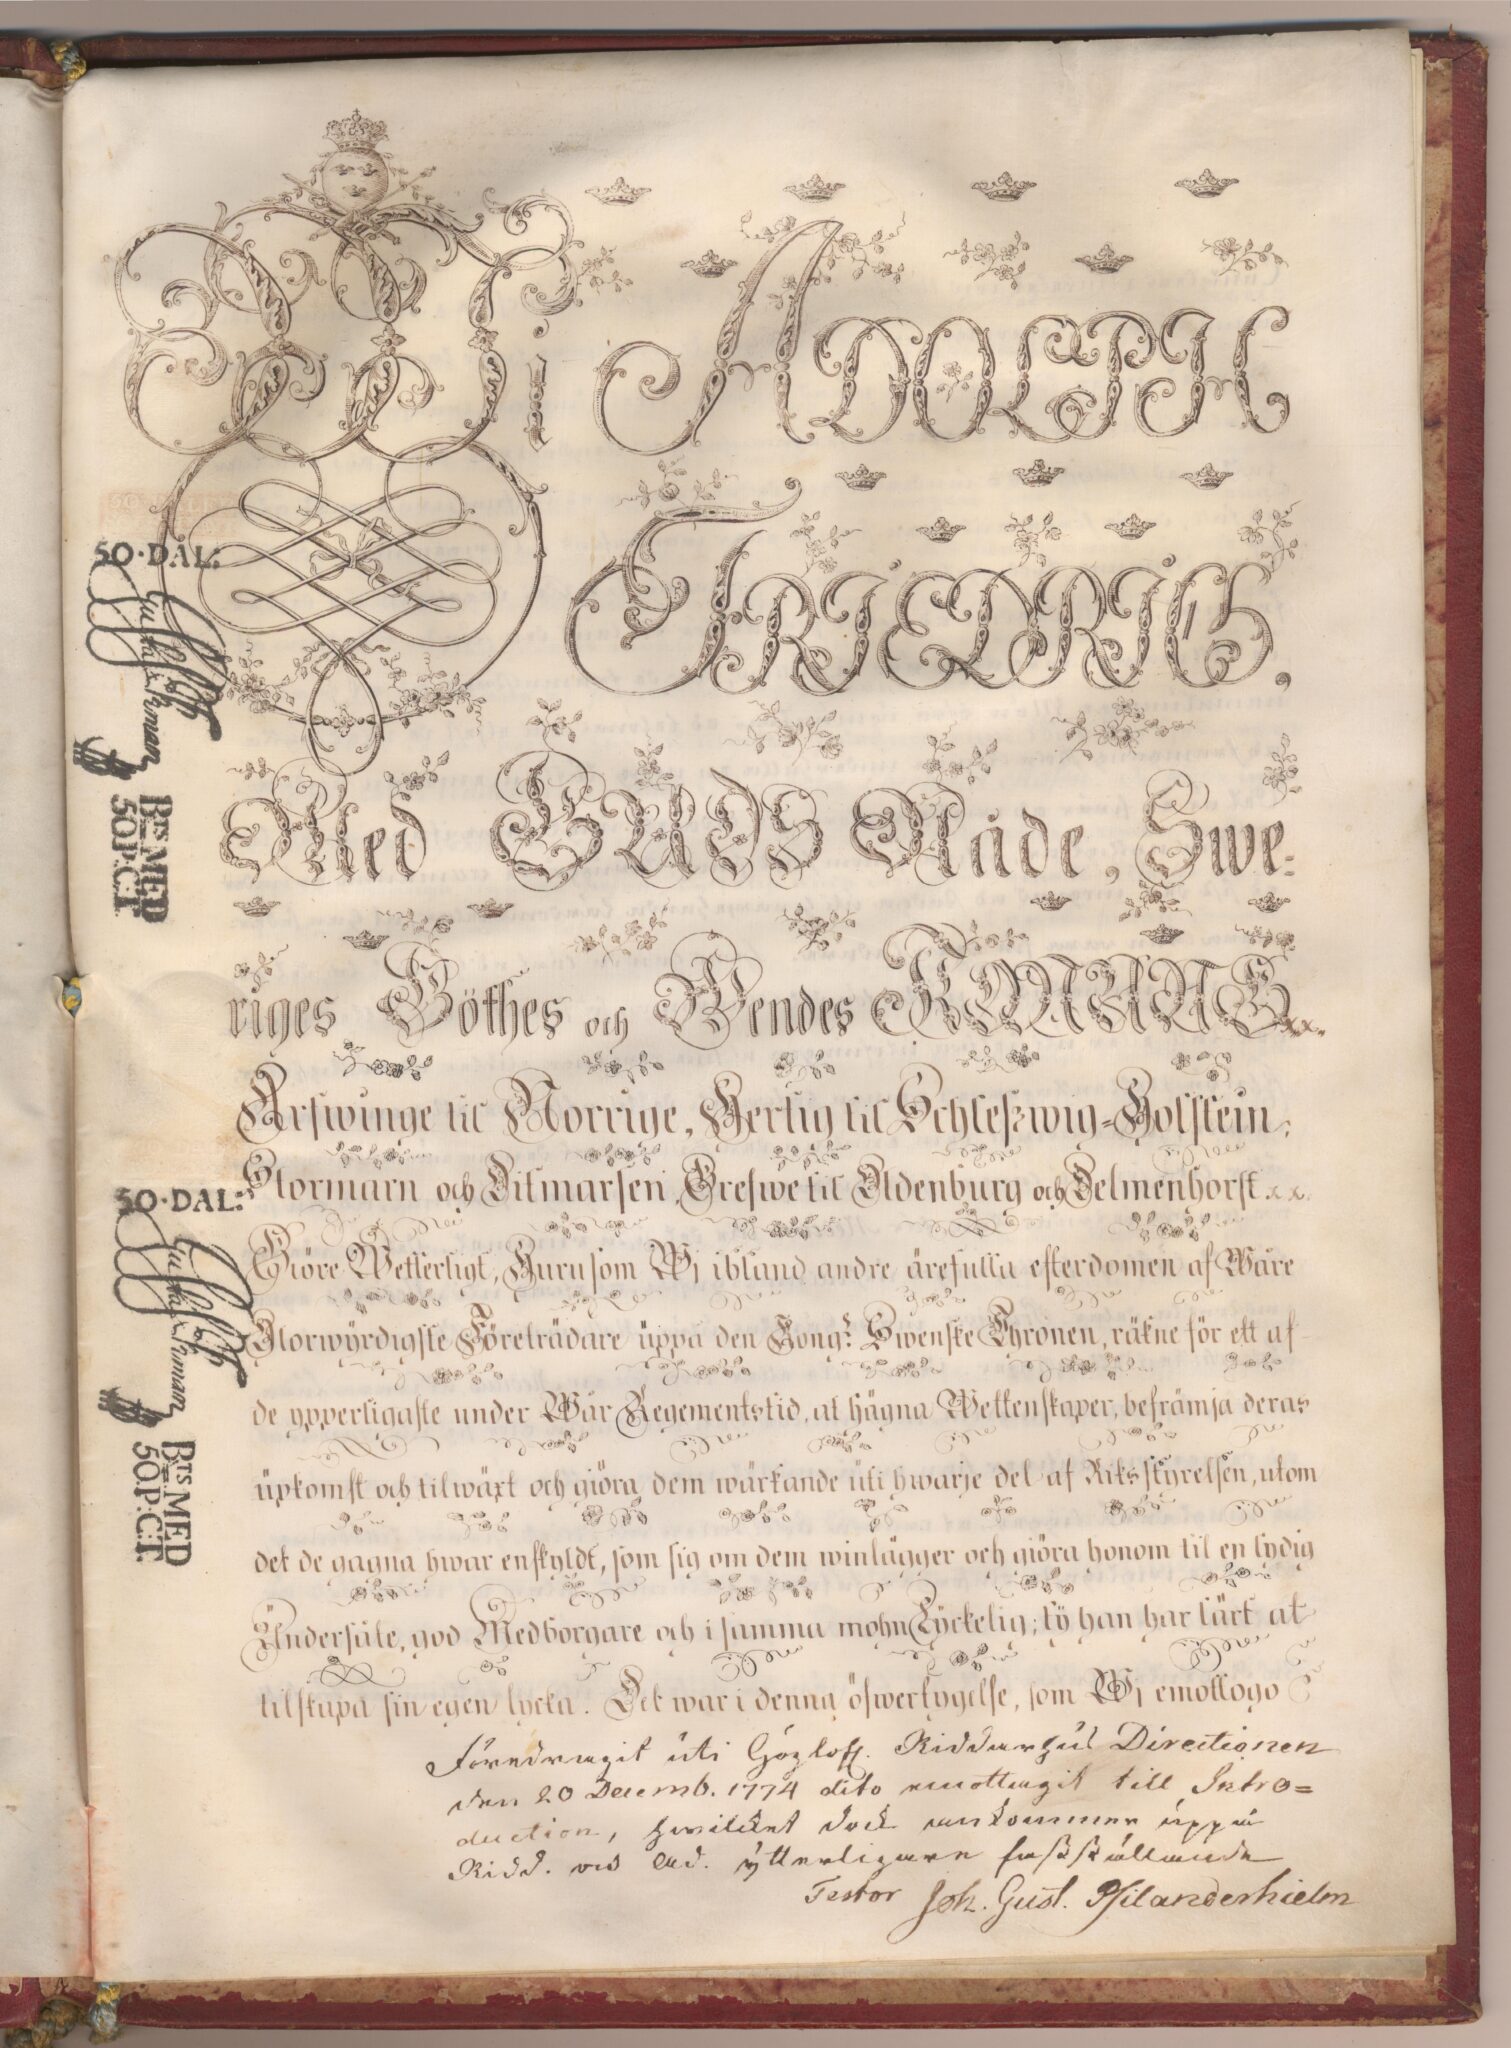 Wi ADOLPH
FRIEDRICH,
Med GUDS Nåde, Swe=
riges Göthes och Wendes KONUNG xx.
Arfwinge til Norrige, Hertig til Schleßwig=Holstein,
Stormarn och Ditmarsen, Grefwe til Oldenburg och Delmenhorst xx.
Giöre Wetterligt, Hurusom Wj ibland andre ärefulla efterdömen af Wåre
Storwyrdigste Företrädare uppå den Kongl. Swenske Thronen, räkne för ett af
de ypperligaste under Wår Regementstid, at hägna Wettenskaper, befrämja deras
upkomst och tilwäxt och giöra dem wärkande uti hwarje del af Riksstyrelsen, utom
det de gagna hwar enskyldt, som sig om dem winlägger och giöra honom til en lydig
Undersåte, god Medborgare och i samma mohn Lyckelig; ty han har lärt at
tilskapa sin egen lycka. Det war i denna öfwertygelse, som Wj emottogo
Föredragit uti Höglofl. Riddarhus Directionen
den 20 Decemb. 1774 dito emottagit till Intro=
duction, hwilcket dock ankommer uppå
Ridd. och Ad. ytterligare fastställande
Testor Joh. Gust. Psilanderhielm
50·DAL:
BTS MED
50.P:CT.
50·DAL:
BTS MED
50.P:CT.